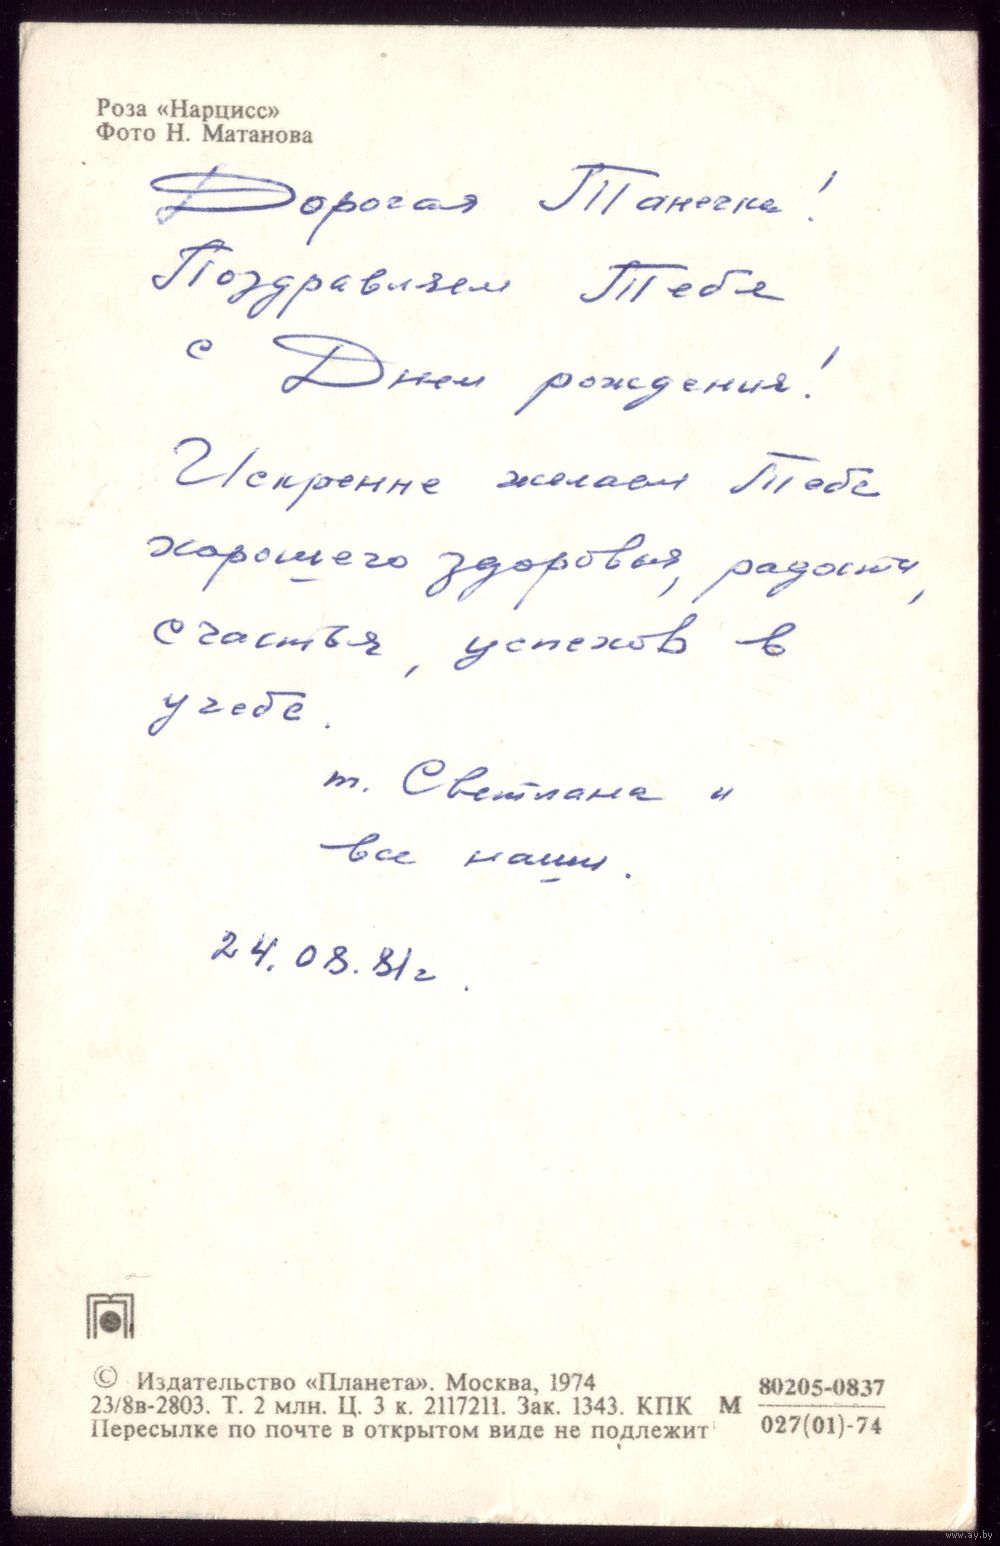 Роза «Нарцисс»
Фото Н. Матанова
Дорогая Танечка!
Поздравляем Тебя
с Днем рождения!
Искренне желаем Тебе
хорошего здоровья, радости,
счастья, успехов в
учебе.
т. Светлана и
все наши.
24.08.81г.
© Издательство «Планета». Москва, 1974
23/8в-2803. Т. 2 млн. Ц. 3 к. 2117211. Зак. 1343. КПК М 80205-0837
027(01)-74
Пересылке по почте в открытом виде не подлежит
www.ay.by